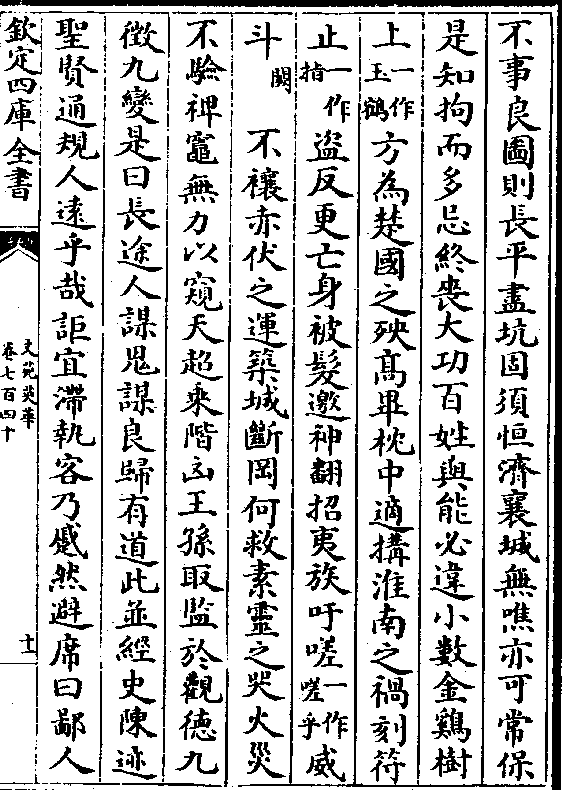 不事良圖則長平盡坑固須恒濟襄城無噍亦可常保
是知拘而多忌終喪大功百姓與能必違小數金鷄樹
上一作玉鶴方為楚國之殃高畢枕中適搆淮南之禍刻符
止一作指作盜反更亡身被髮邀神翻招夷族吁嗟一作嗟乎威
斗闕不禳赤伏之運築城斷岡何救素靈之哭火災
不驗禆竈無力以窺天超乘階凶王孫取監於觀德九
徵九變是曰長途人謀鬼謀良歸有道此並經史陳迹
聖賢通規人遠乎哉詎宜滯執客乃蹙然避席曰鄙人
欽定四庫全書
文苑英華
卷七百四十
十一